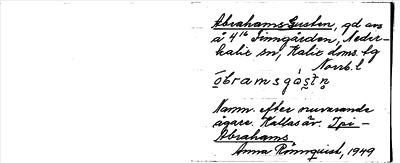 Abrahams Gusten, gd av
å 4¹⁶ Finngården, Neder-
kalix sn, Kalix dms. fg
Norrb. l
åbramsgåstn
Namn efter nuvarande
ägare. Kallas äv. Ipi-
Abrahams
Anna Rönnquist, 1949